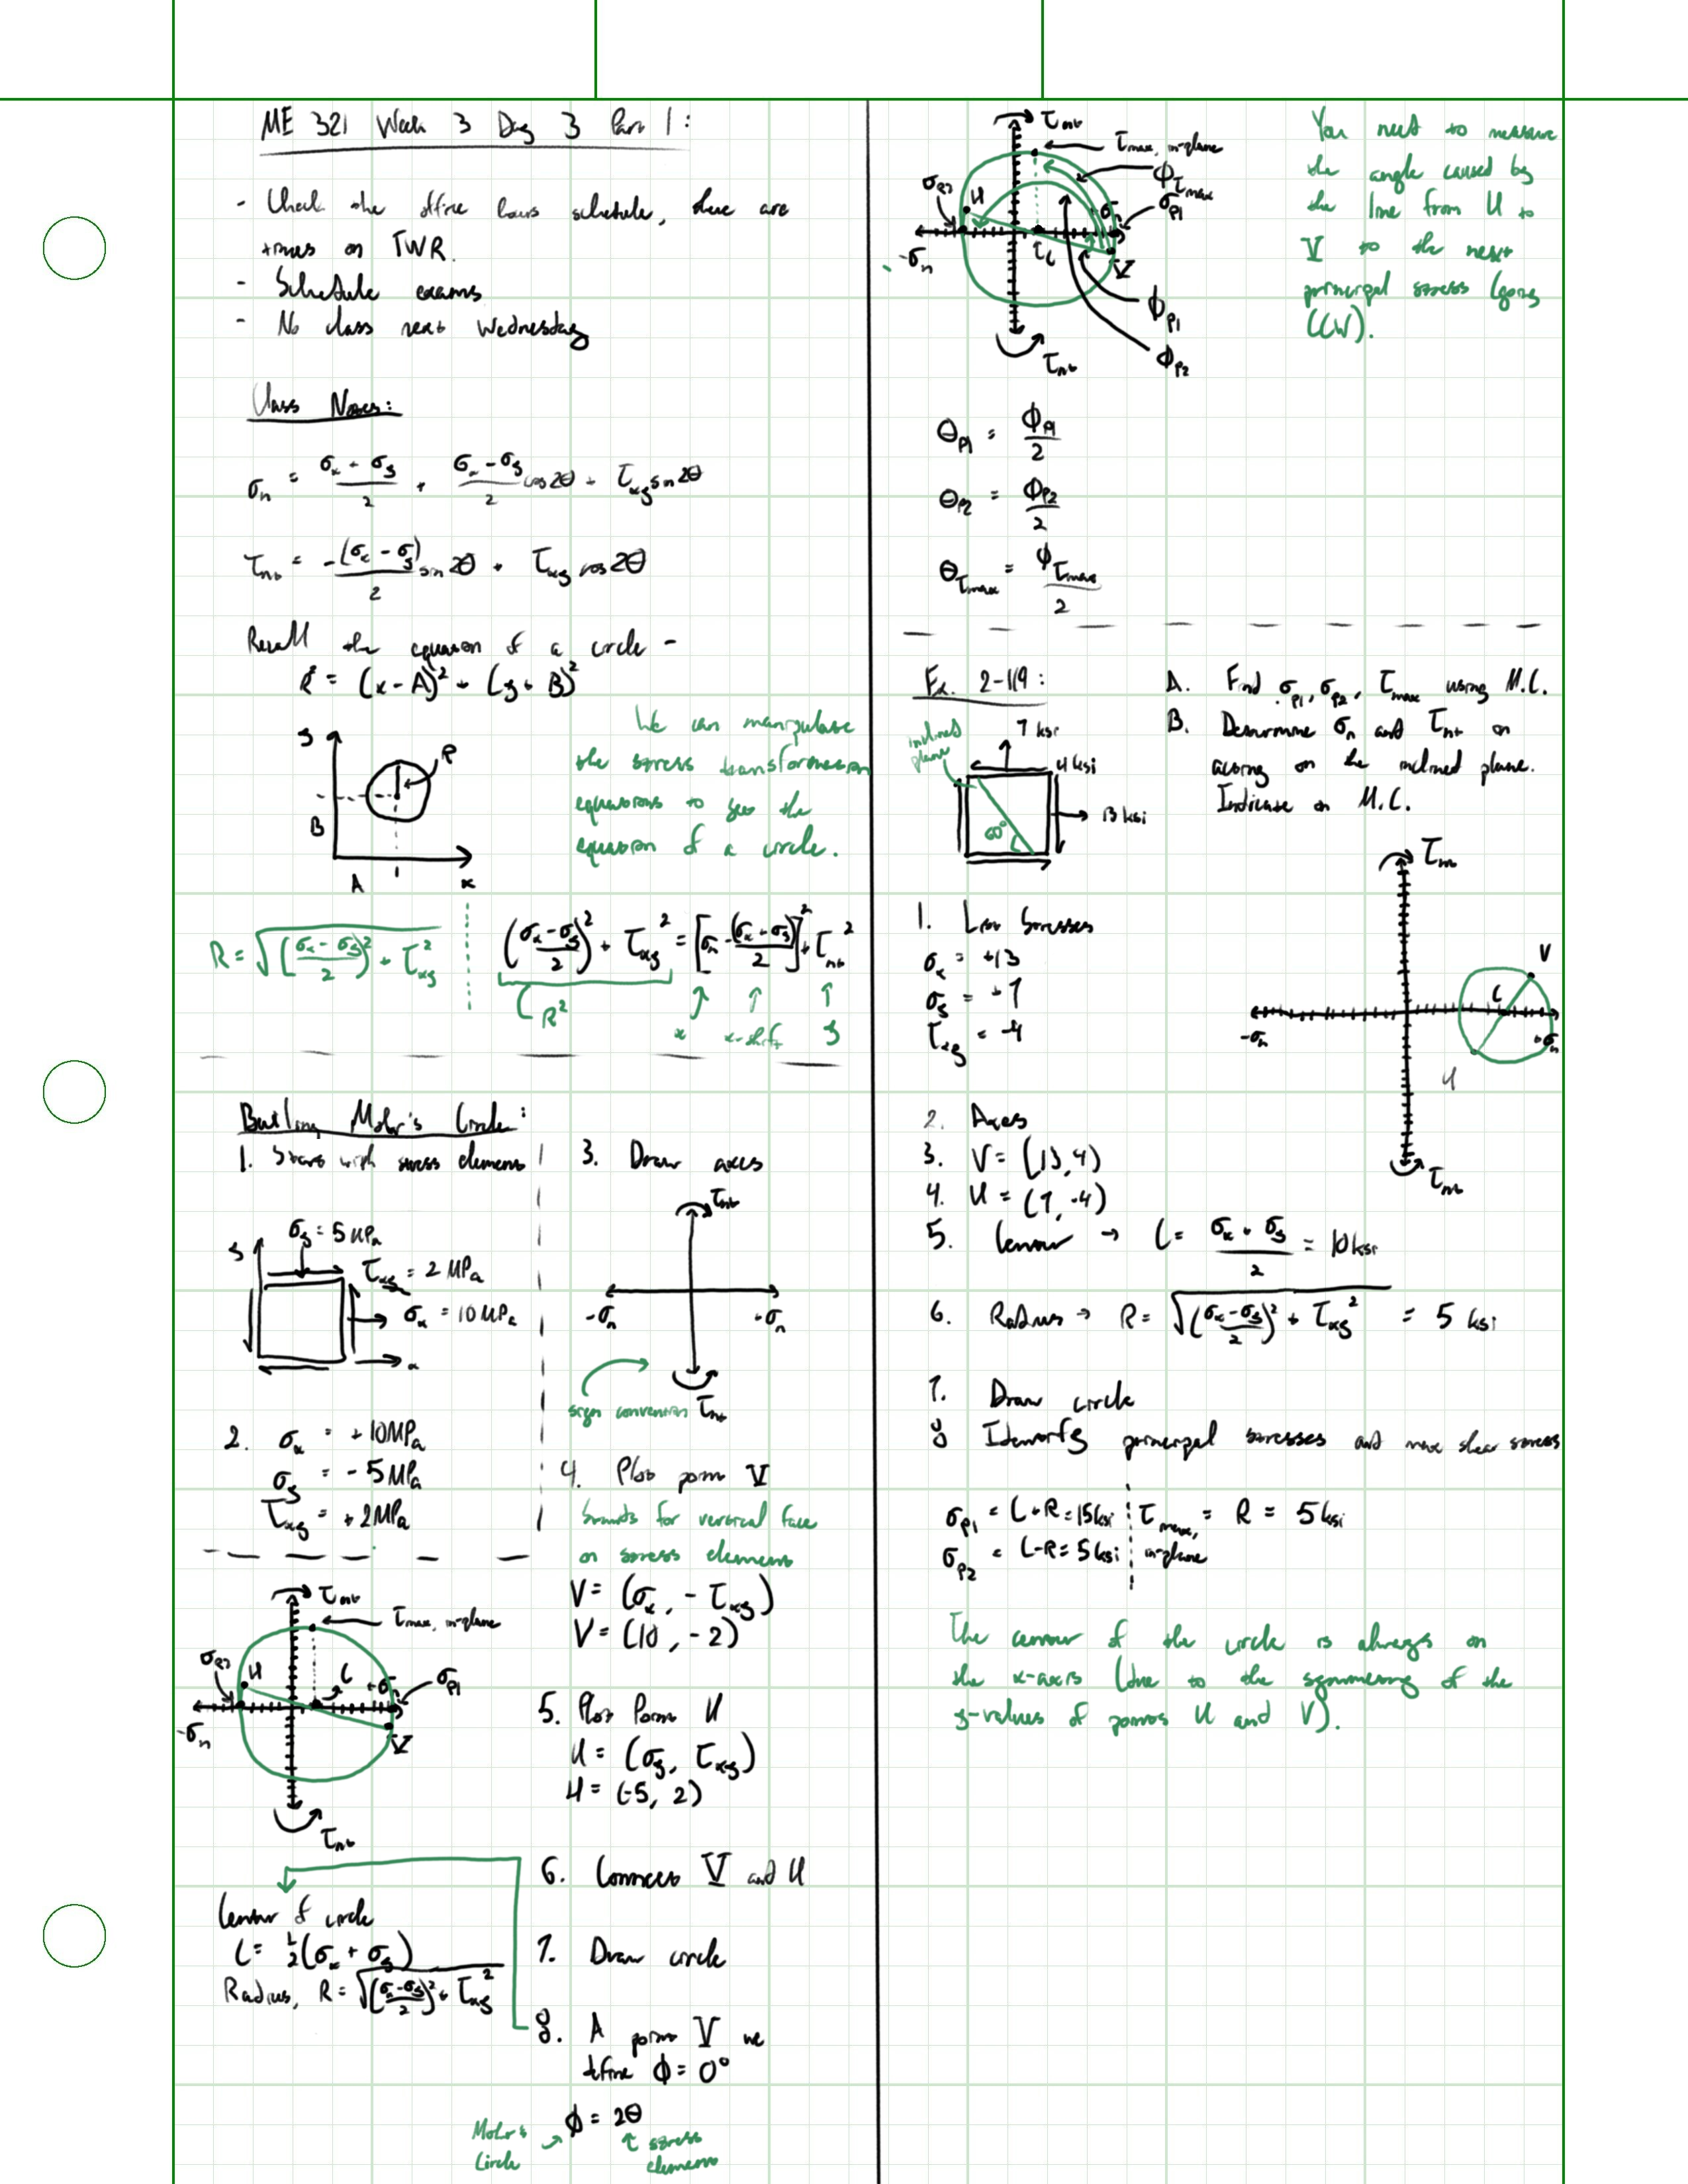 ME 321 Week 3 Day 3 Part 1:
- Check the office hours schedule, there are
times on TWR.
- Schedule exams
- No class next Wednesday
Class Notes:
σn = (σx + σy)/2 + (σx - σy)/2 cos2θ + τxy sin2θ
τnt = -(σx - σy)/2 sin2θ + τxy cos2θ
Recall the equation of a circle -
R² = (x - A)² + (y + B)²
We can manipulate
the stress transformation
equations to get the
equation of a circle.
y
R
B
A
x
R = √(((σx - σy)/2)² + τxy²)
((σx - σy)/2)² + τxy² = [σn - (σx + σy)/2]² + τnt²
R²
x
x-shift
y
Building Mohr's Circle:
1. Start with stress element
σy = 5 MPa
y
τxy = 2 MPa
σx = 10 MPa
x
2. σx = +10 MPa
σy = -5 MPa
τxy = +2 MPa
τnt
τmax, in-plane
σp2
H
C
+σn
σp1
-σn
V
τnt
Center of circle
C = ½(σx + σy)
Radius, R = √(((σx - σy)/2)² + τxy²)
3. Draw axes
τnt
-σn
+σn
sign convention
τnt
4. Plot point V
Stands for vertical face
on stress element
V = (σx, -τxy)
V = (10, -2)
5. Plot Point H
H = (σy, τxy)
H = (-5, 2)
6. Connect V and H
7. Draw circle
8. A point V we
define ϕ = 0°
Mohr's
Circle
ϕ = 2θ
stress
element
τnt
τmax, in-plane
ϕτmax
σp2
H
σp1
+σn
-σn
C
V
ϕp1
τnt
ϕp2
You need to measure
the angle caused by
the line from H to
V to the next
principal stress (going
CCW).
θp1 = ϕp1/2
θp2 = ϕp2/2
θτmax = ϕτmax/2
Ex. 2-119:
A. Find σp1, σp2, τmax using M.C.
B. Determine σn and τnt on
acting on the inclined plane.
Indicate on M.C.
inclined
plane
7 ksi
4 ksi
13 ksi
60°
1. List Stresses
σx = +13
σy = +7
τxy = -4
τnt
V
C
-σn
+σn
H
τnt
2. Axes
3. V = (13, 4)
4. H = (7, -4)
5. Center → C = (σx + σy)/2 = 10 ksi
6. Radius → R = √(((σx - σy)/2)² + τxy²) = 5 ksi
7. Draw circle
8 Identify principal stresses and max shear stress
σp1 = C + R = 15 ksi
σp2 = C - R = 5 ksi
τmax, in-plane = R = 5 ksi
The center of the circle is always on
the x-axis (due to the symmetry of the
y-values of points H and V).